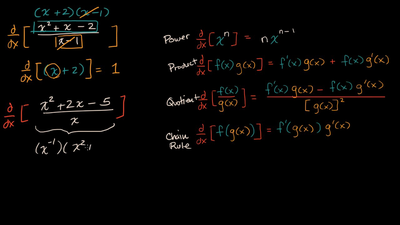 (x + 2)(x - 1)
d/dx [ x² + x - 2 / x - 1 ]
d/dx [(x + 2)] = 1
d/dx [ x² + 2x - 5 / x ]
(x⁻¹)( x²
Power d/dx [xⁿ] = n xⁿ⁻¹
Product d/dx [f(x) g(x)] = f'(x) g(x) + f(x) g'(x)
Quotient d/dx [ f(x) / g(x) ] = f'(x) g(x) - f(x) g'(x) / [g(x)]²
Chain Rule d/dx [f(g(x))] = f'(g(x)) g'(x)